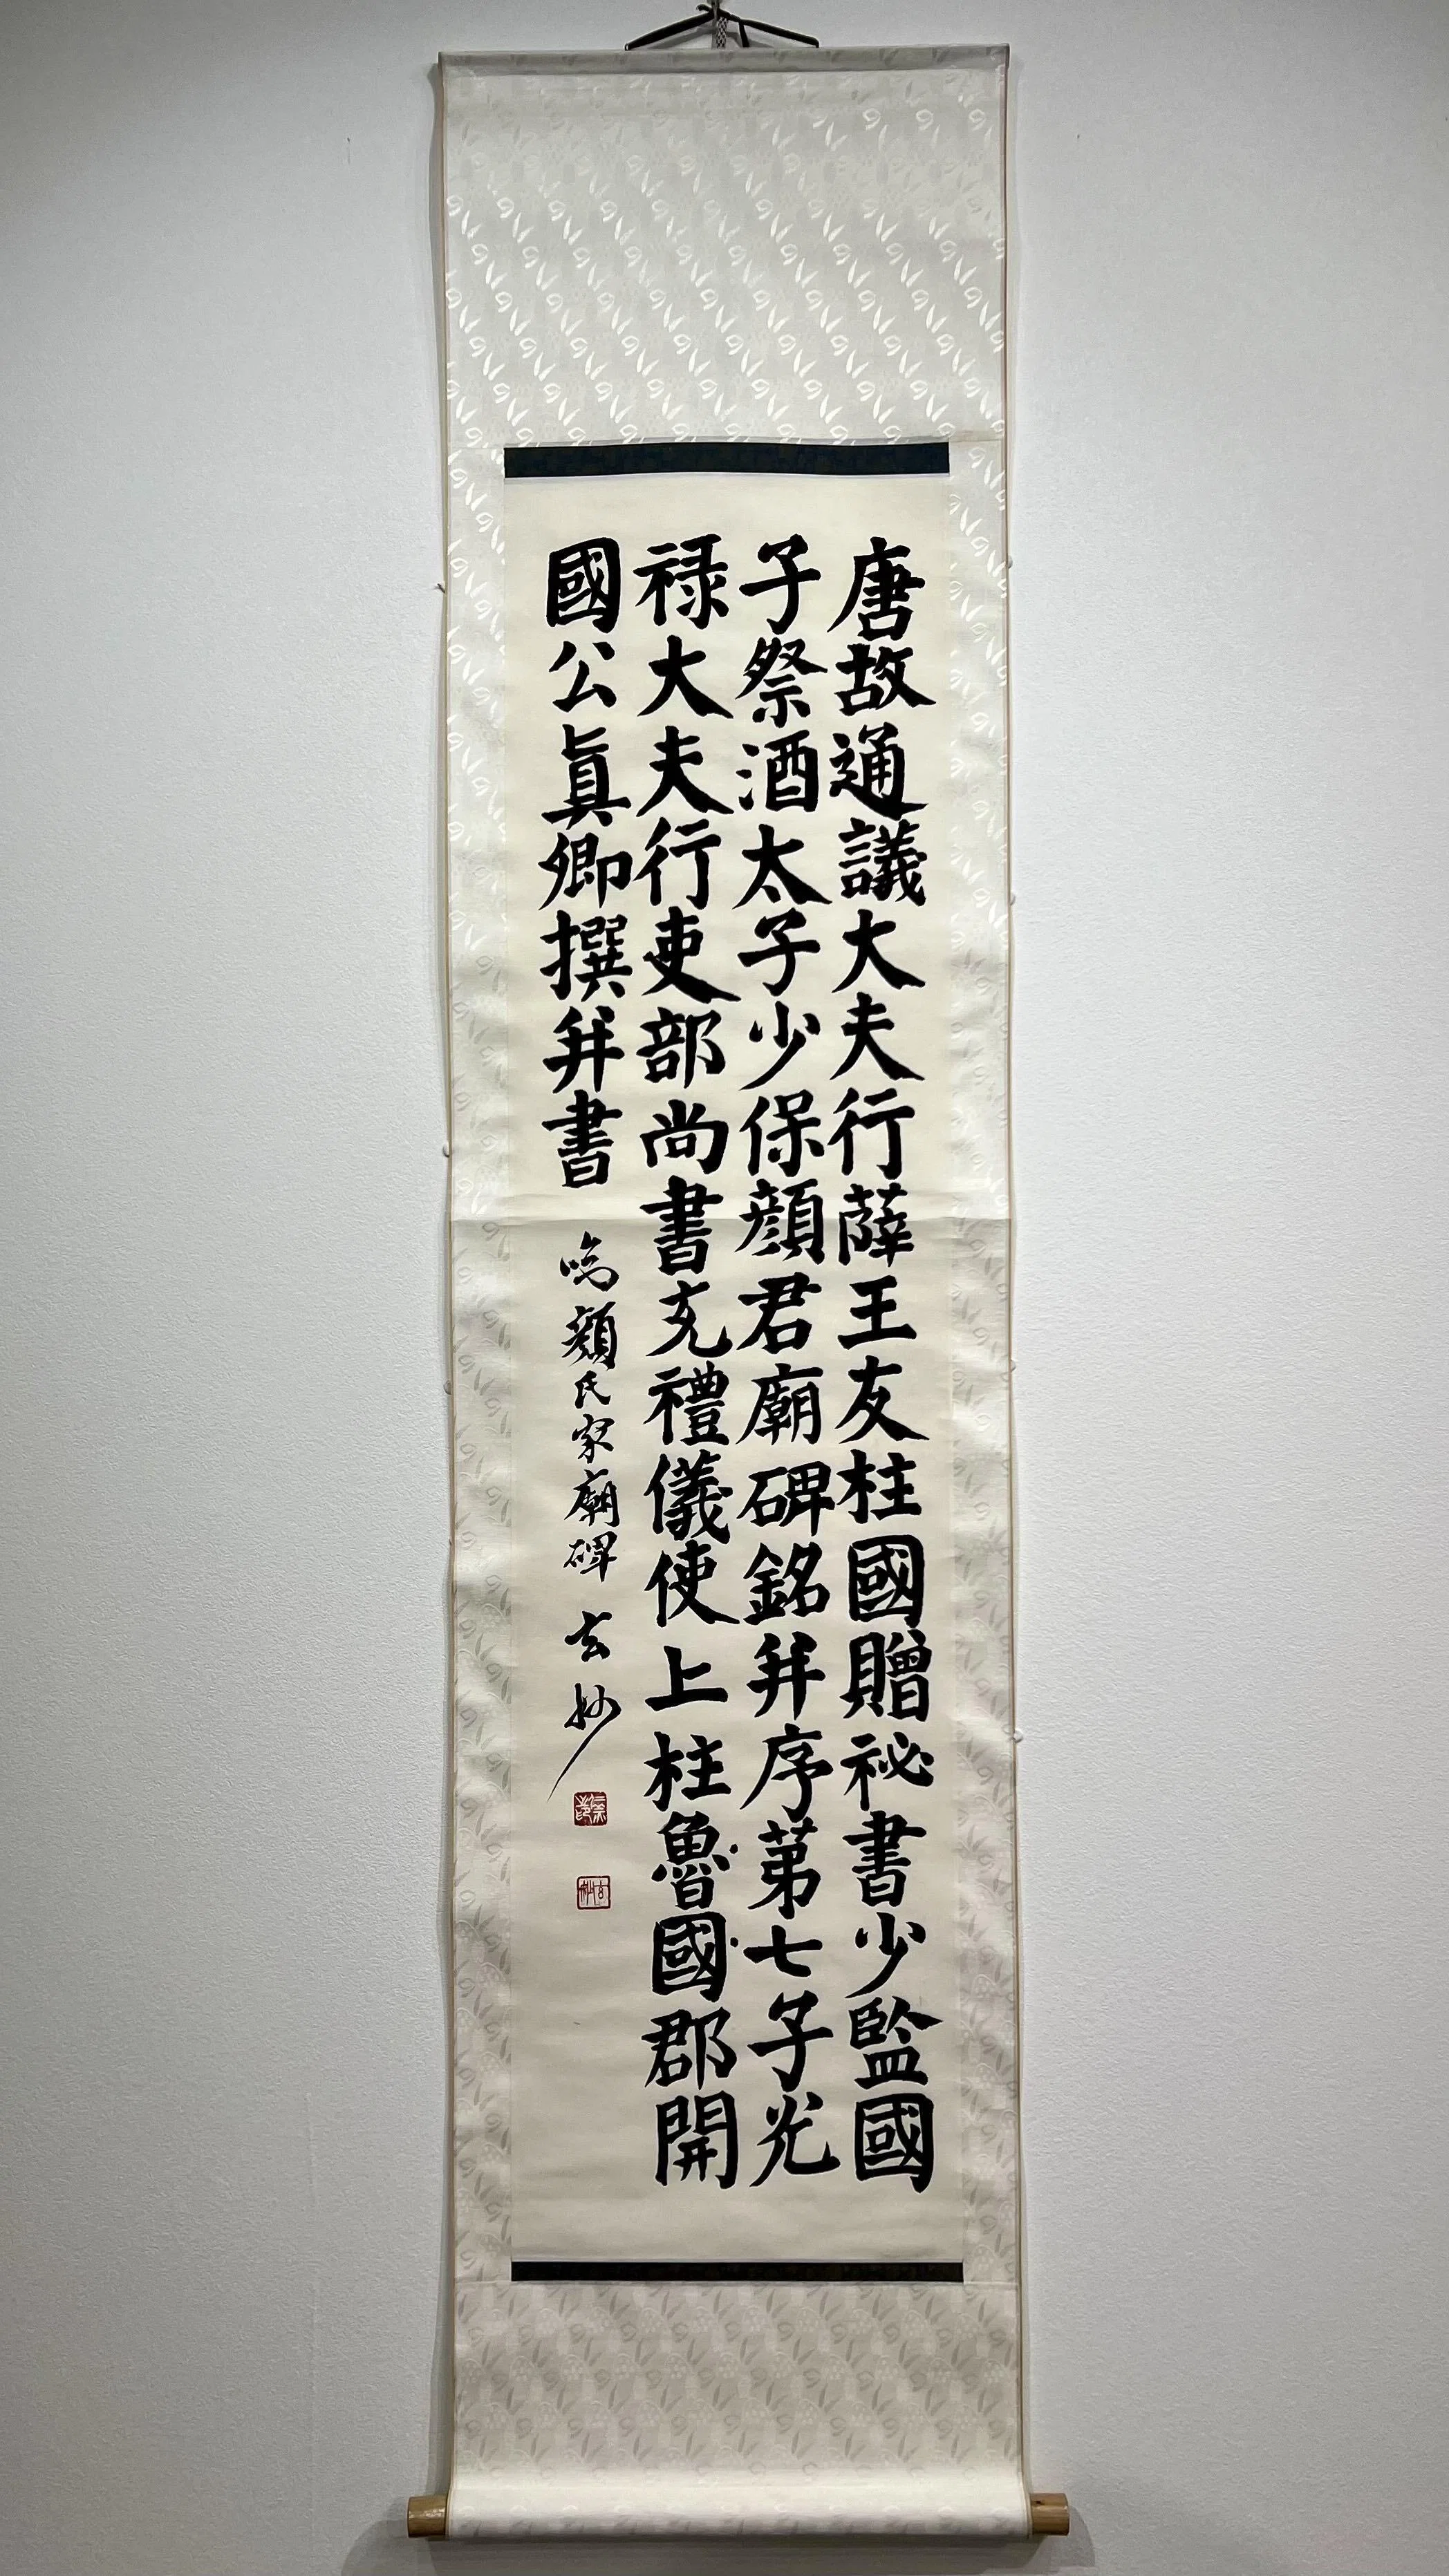 唐故通議大夫行薛王友柱國贈祕書少監國
子祭酒太子少保顔君廟碑銘并序第七子光
禄大夫行吏部尚書充禮儀使上柱魯國郡開
國公眞卿撰并書
臨顔氏家廟碑 玄妙
玄妙